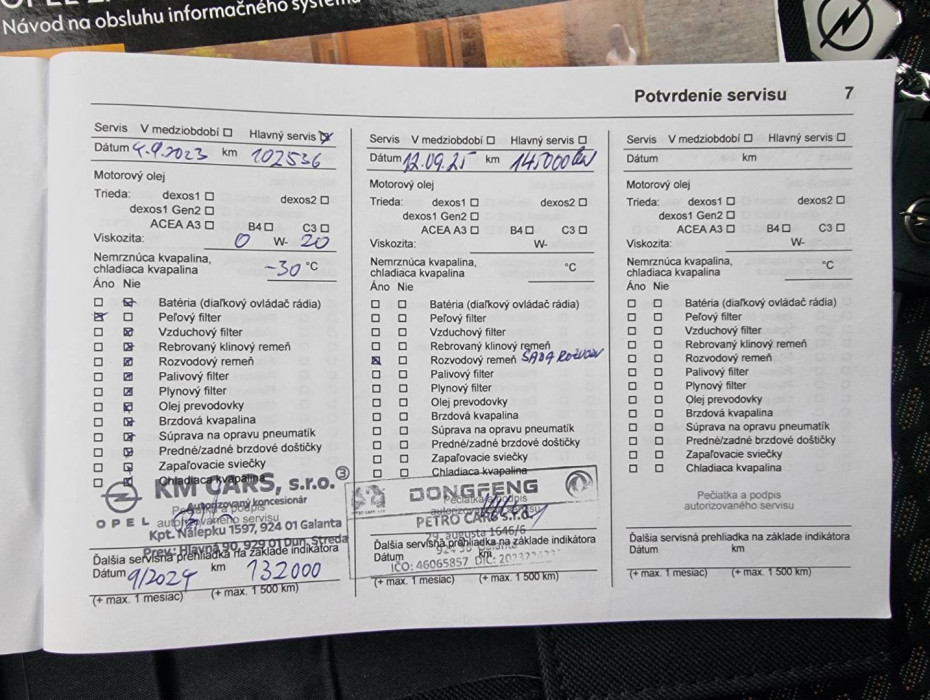 Návod na obsluhu informačného systému
Potvrdenie servisu 7
Servis V medziobdobí ☐ Hlavný servis ☒
Dátum 4.9.2023 km 102536
Motorový olej
Trieda: dexos1 ☐ dexos2 ☐
dexos1 Gen2 ☐
ACEA A3 ☐ B4 ☐ C3 ☐
Viskozita: 0 W- 20
Nemrznúca kvapalina,
chladiaca kvapalina -30 °C
Áno Nie
☐ ☒ Batéria (diaľkový ovládač rádia)
☒ ☐ Peľový filter
☐ ☒ Vzduchový filter
☐ ☒ Rebrovaný klinový remeň
☐ ☒ Rozvodový remeň
☐ ☒ Palivový filter
☐ ☒ Plynový filter
☐ ☒ Olej prevodovky
☐ ☒ Brzdová kvapalina
☐ ☒ Súprava na opravu pneumatík
☐ ☒ Predné/zadné brzdové doštičky
☐ ☒ Zapaľovacie sviečky
☐ ☒ Chladiaca kvapalina
KM CARS, s.r.o. ③
Autorizovaný koncesionár
Pečiatka a podpis
OPEL autorizovaného servisu
Kpt. Nálepku 1597, 924 01 Galanta
Prev.: Hlavná 90, 929 01 Dun. Streda
Ďalšia servisná prehliadka na základe indikátora
Dátum 9/2024 km 132000
(+ max. 1 mesiac) (+ max. 1 500 km)
Servis V medziobdobí ☐ Hlavný servis ☐
Dátum 12.09.25 km 145000km
Motorový olej
Trieda: dexos1 ☐ dexos2 ☐
dexos1 Gen2 ☐
ACEA A3 ☐ B4 ☐ C3 ☐
Viskozita: W-
Nemrznúca kvapalina,
chladiaca kvapalina °C
Áno Nie
☐ ☐ Batéria (diaľkový ovládač rádia)
☐ ☐ Peľový filter
☐ ☐ Vzduchový filter
☐ ☐ Rebrovaný klinový remeň
☒ ☐ Rozvodový remeň SADA ROZVODOV
☐ ☐ Palivový filter
☐ ☐ Plynový filter
☐ ☐ Olej prevodovky
☐ ☐ Brzdová kvapalina
☐ ☐ Súprava na opravu pneumatík
☐ ☐ Predné/zadné brzdové doštičky
☐ ☐ Zapaľovacie sviečky
☐ ☐ Chladiaca kvapalina
DONGFENG
Pečiatka a podpis
autorizovaného servisu
PETRO CARS s.r.o.
29. augusta 1646/6
Ďalšia servisná prehliadka na základe indikátora
Dátum km
IČO: 46065857 DIČ:
(+ max. 1 mesiac) (+ max. 1 500 km)
Servis V medziobdobí ☐ Hlavný servis ☐
Dátum km
Motorový olej
Trieda: dexos1 ☐ dexos2 ☐
dexos1 Gen2 ☐
ACEA A3 ☐ B4 ☐ C3 ☐
Viskozita: W-
Nemrznúca kvapalina,
chladiaca kvapalina °C
Áno Nie
☐ ☐ Batéria (diaľkový ovládač rádia)
☐ ☐ Peľový filter
☐ ☐ Vzduchový filter
☐ ☐ Rebrovaný klinový remeň
☐ ☐ Rozvodový remeň
☐ ☐ Palivový filter
☐ ☐ Plynový filter
☐ ☐ Olej prevodovky
☐ ☐ Brzdová kvapalina
☐ ☐ Súprava na opravu pneumatík
☐ ☐ Predné/zadné brzdové doštičky
☐ ☐ Zapaľovacie sviečky
☐ ☐ Chladiaca kvapalina
Pečiatka a podpis
autorizovaného servisu
Ďalšia servisná prehliadka na základe indikátora
Dátum km
(+ max. 1 mesiac) (+ max. 1 500 km)